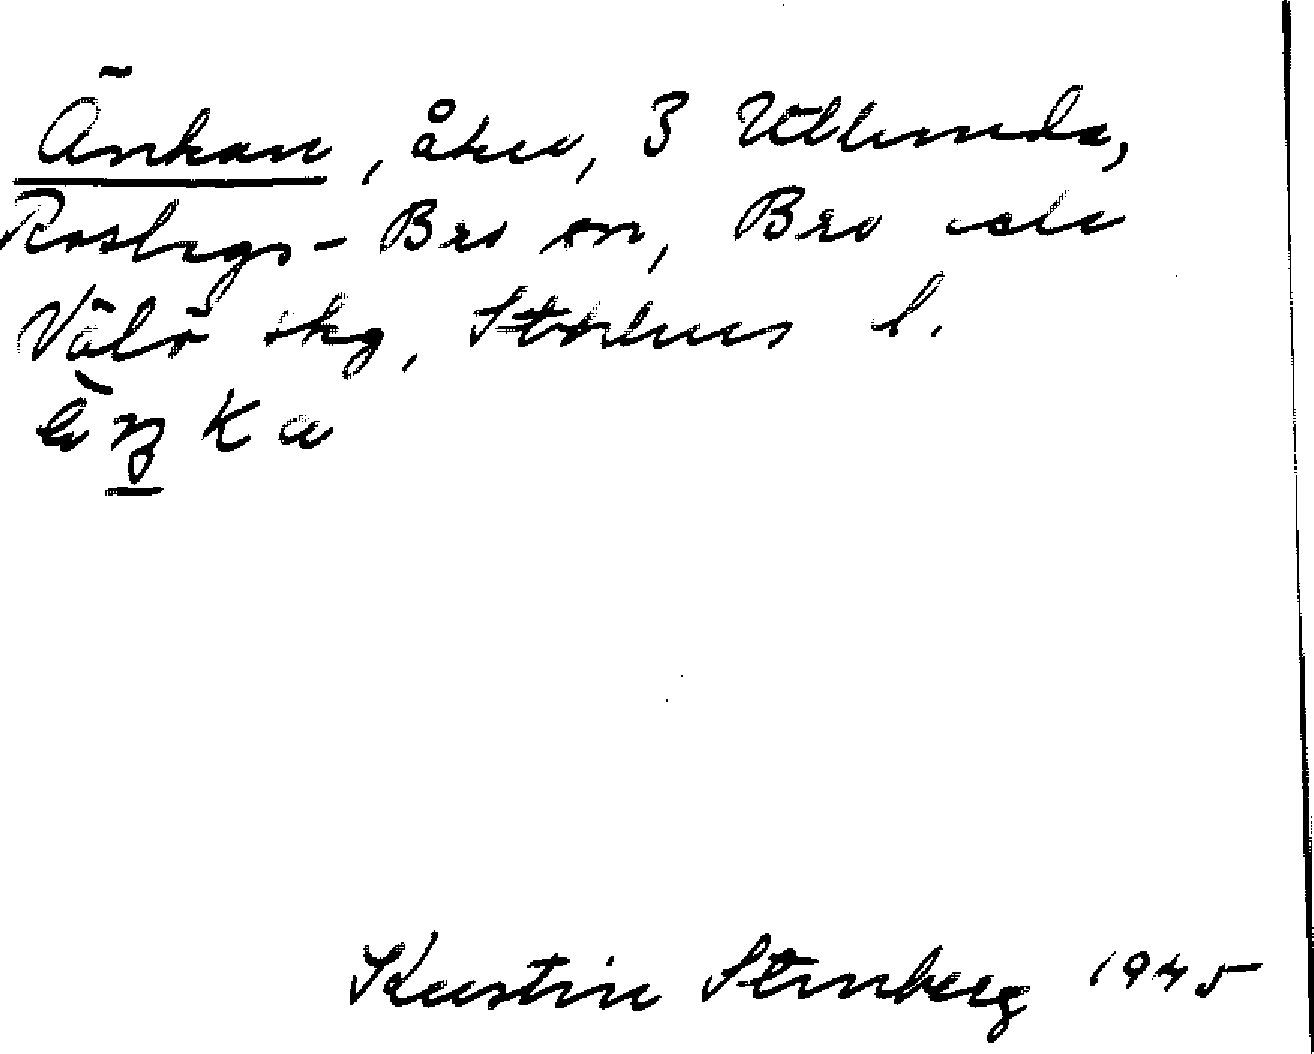 Änkan, åker, 3 Ullunda,
Roslags-Bro sn, Bro och
Vätö skg, Stockholms l.
Kerstin Stenberg 1945